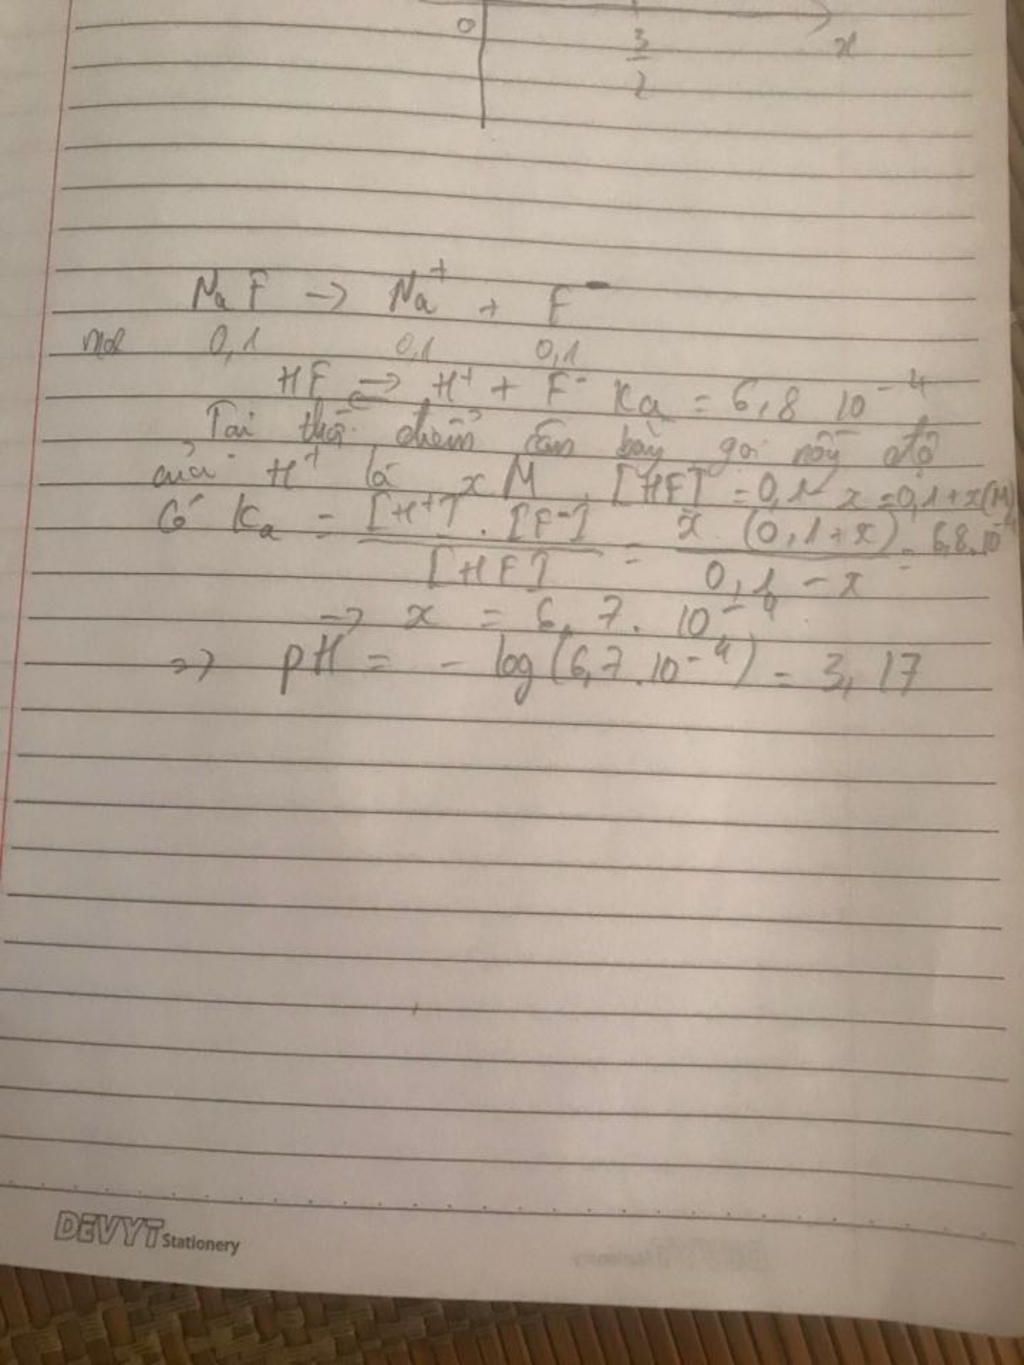 0
3
2
x
NaF → Na⁺ + F⁻
mol 0,1 0,1 0,1
HF ⇌ H⁺ + F⁻ Ka = 6,8 10⁻⁴
Tại thời điểm cân bằng gọi nồng độ
của H⁺ là x M, [HF] = 0,1 - x = 0,1 + x (M)
Có Ka = [H⁺] . [F⁻] / [HF] = x . (0,1 + x) / 0,1 - x = 6,8.10⁻⁴
→ x = 6,7 . 10⁻⁴
=> pH = - log(6,7.10⁻⁴) = 3,17
DEVYT Stationery